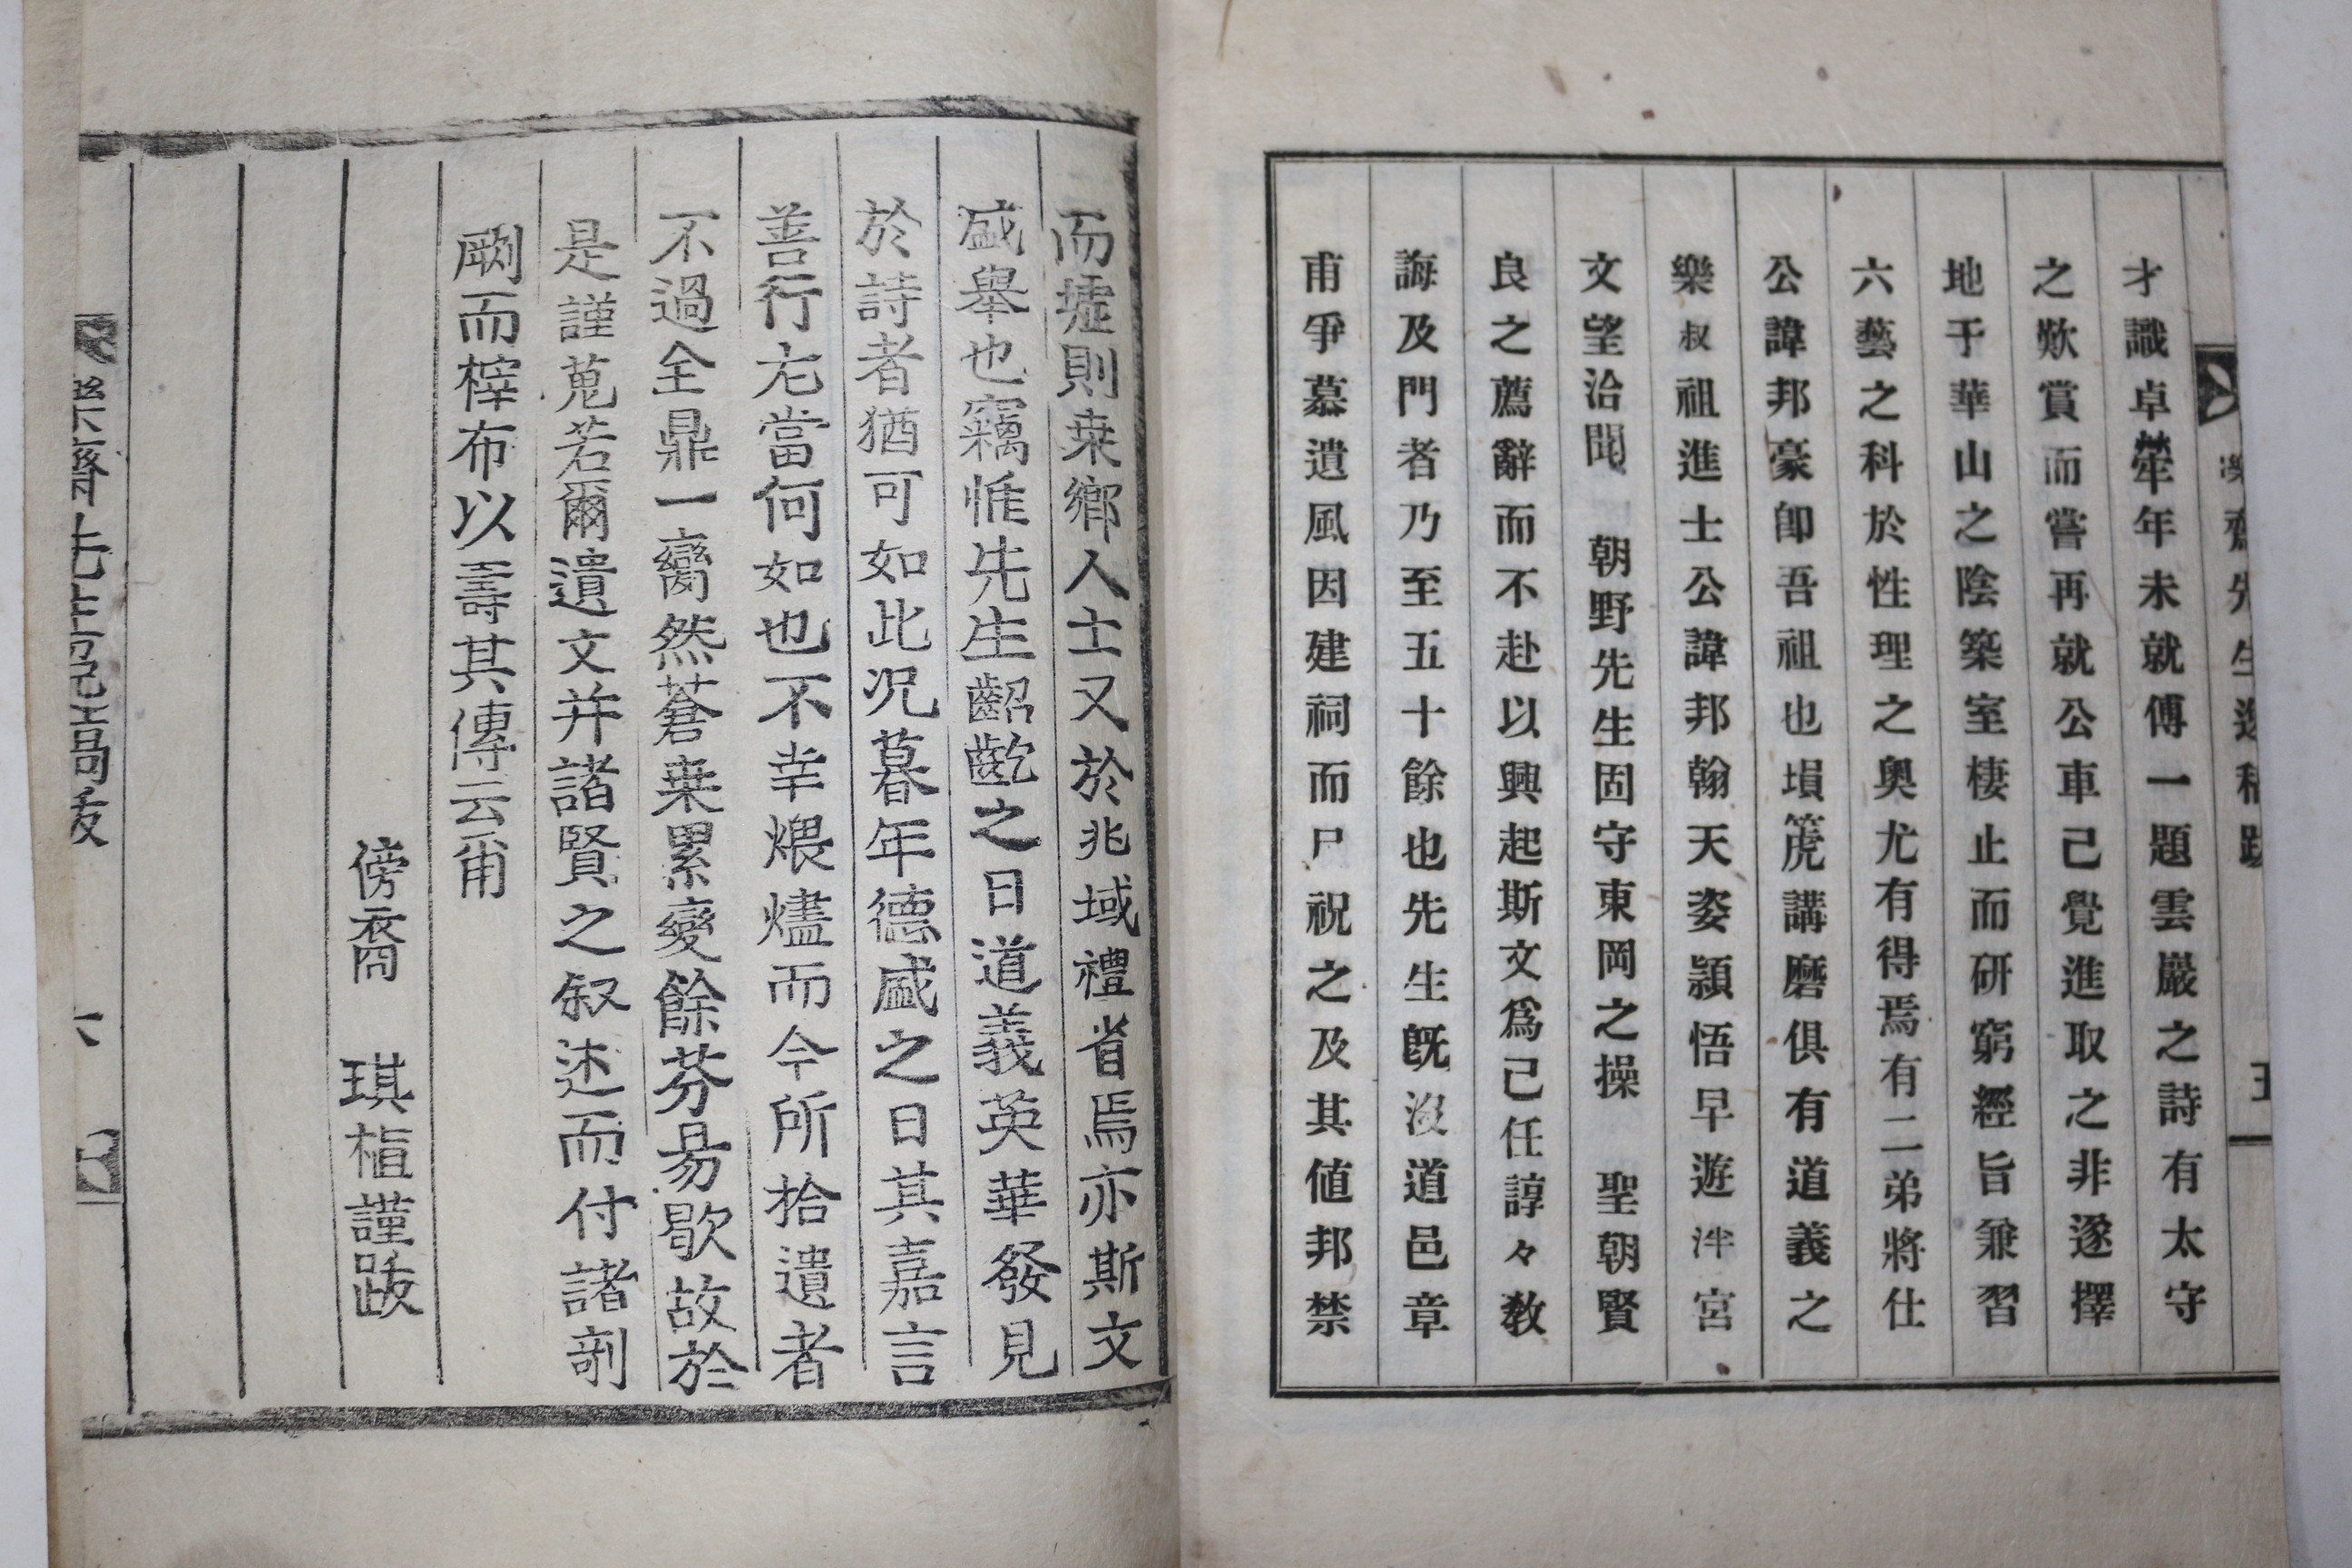 樂齋先生逸稿跋
五
才識卓犖年未就傅一題雲巖之詩有太守
之歎賞而嘗再就公車己覺進取之非遂擇
地于華山之陰築室棲止而研窮經旨兼習
六藝之科於性理之奧尤有得焉有二弟將仕
公諱邦豪卽吾祖也塤篪講磨俱有道義之
樂叔祖進士公諱邦翰天姿潁悟早遊泮宮
文望洽聞 朝野先生固守東岡之操 聖朝賢
良之薦辭而不赴以興起斯文爲己任諄々敎
誨及門者乃至五十餘也先生旣沒道邑章
甫爭慕遺風因建祠而尸祝之及其値邦禁
而墟則桒鄉人士又於兆域禮省焉亦斯文
盛擧也竊惟先生齠齕之日道義英華發見
於詩者猶可如此况暮年德盛之日其嘉言
善行尤當何如也不幸煨燼而今所拾遺者
不過全鼎一臠然蒼桒累變餘芬易歇故於
是謹蒐若爾遺文幷諸賢之叙述而付諸剞
劂而榟布以壽其傳云甭
傍裔 琪植謹跋
樂齋先生逸稿跋
六